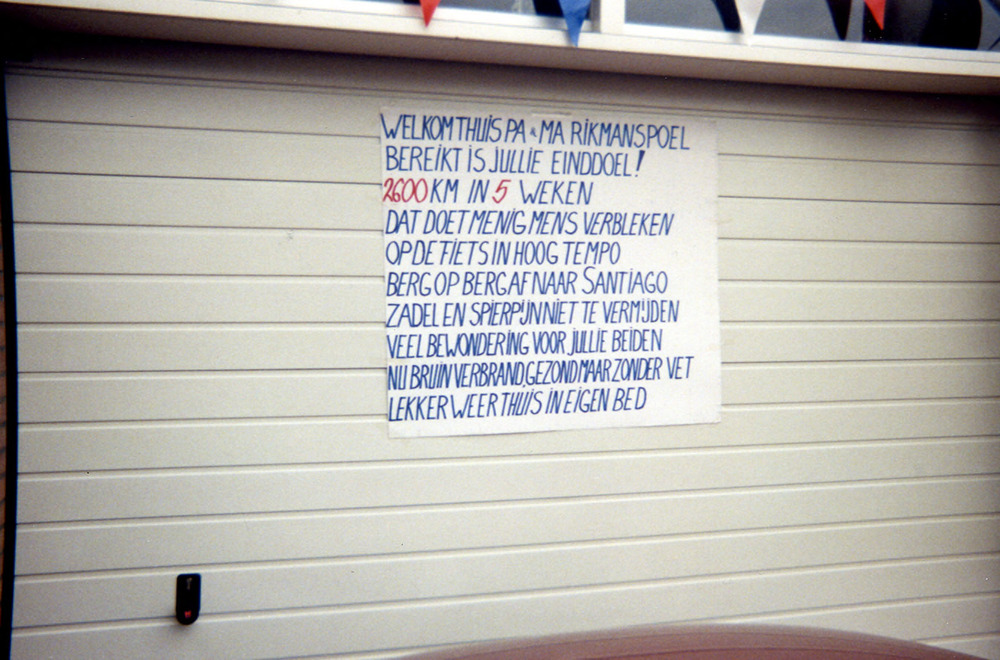 WELKOM THUIS PA & MA RIKMANSPOEL
BEREIKT IS JULLIE EINDDOEL!
2600 KM IN 5 WEKEN
DAT DOET MENIG MENS VERBLEKEN
OP DE FIETS IN HOOG TEMPO
BERG OP BERG AF NAAR SANTIAGO
ZADEL EN SPIERPIJN NIET TE VERMIJDEN
VEEL BEWONDERING VOOR JULLIE BEIDEN
NU BRUIN VERBRAND, GEZOND MAAR ZONDER VET
LEKKER WEER THUIS IN EIGEN BED